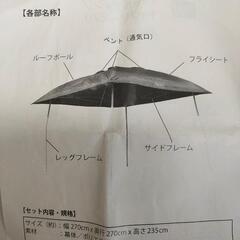 【各部名称】
ベント（通気口）
ルーフポール
フライシート
レッグフレーム
サイドフレーム
【セット内容・規格】
サイズ（約）：幅270cm x 奥行270cm x 高さ235cm
素材　：幕体／ポリエ